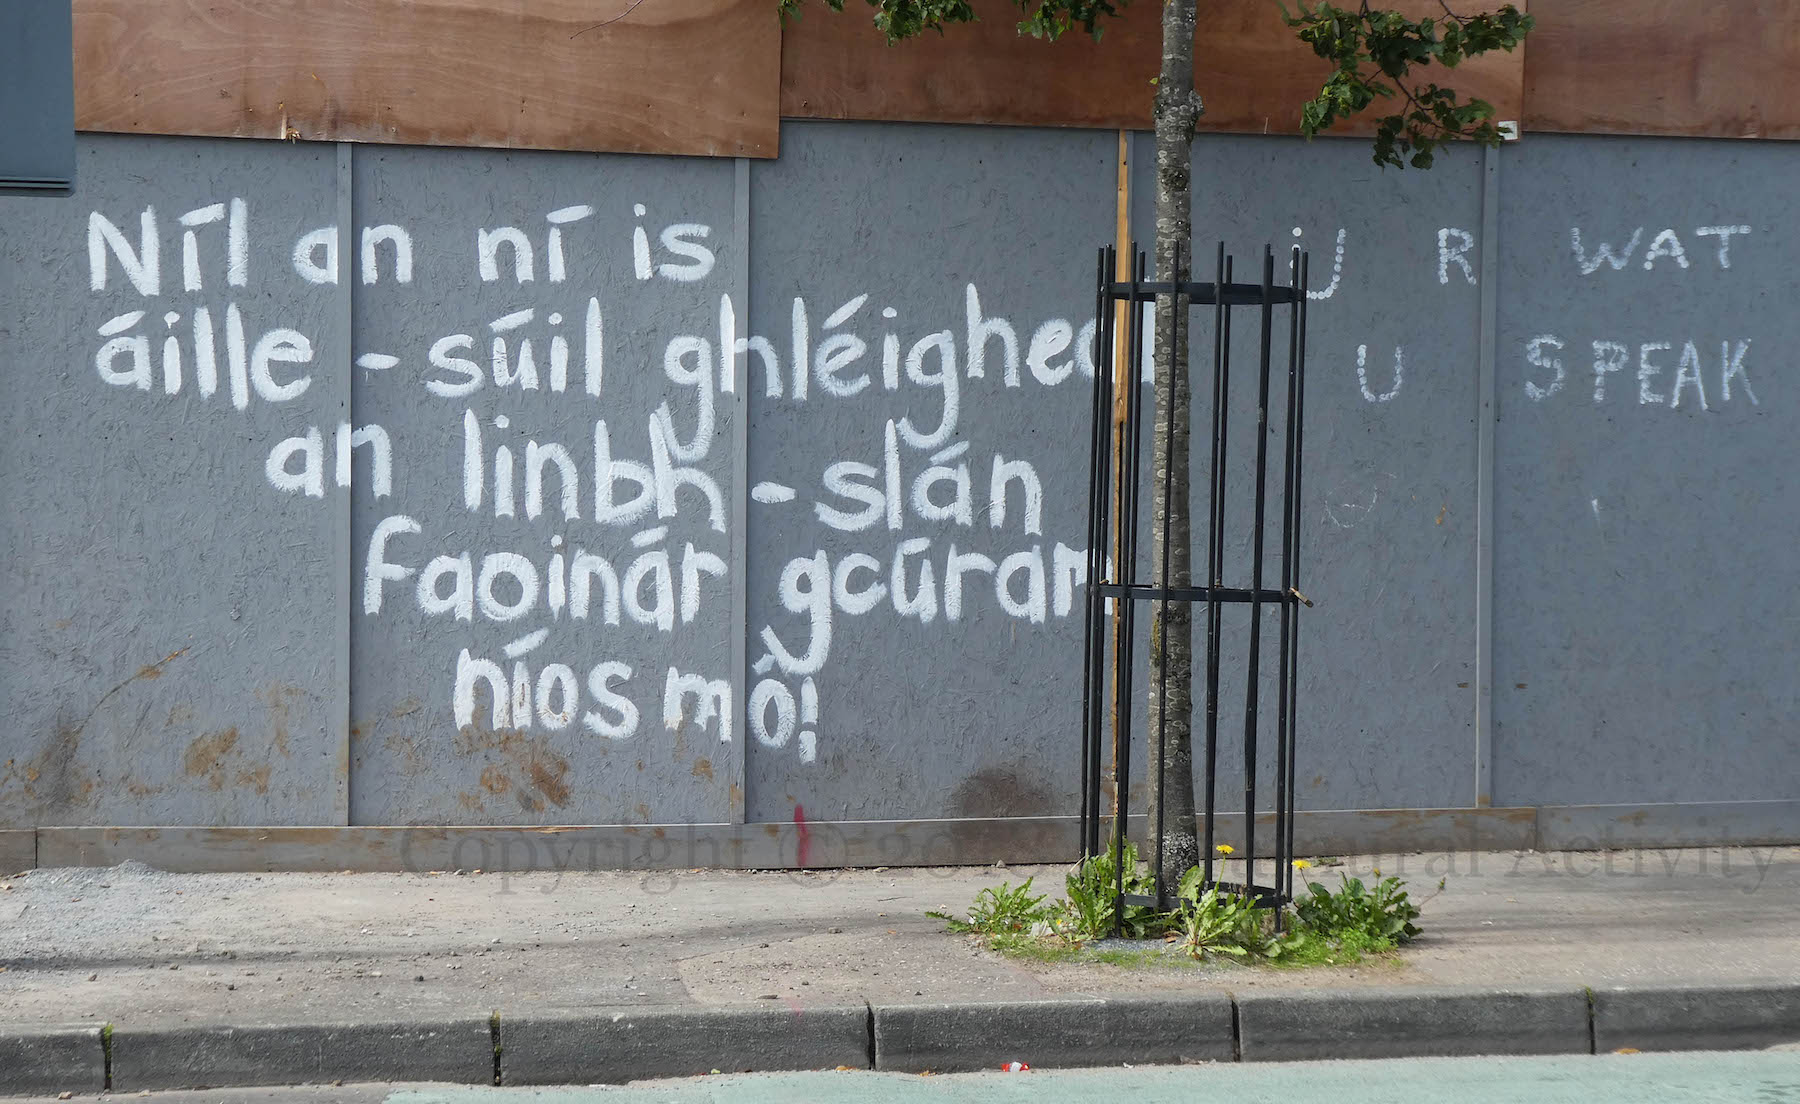 Níl an ní is
áille - súil ghléigheal
an linbh - slán
faoinár gcúram
níos mó!
U R WAT
U SPEAK
Copyright © Activity